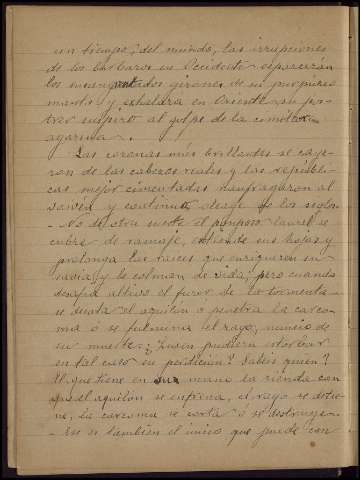 un tiempo, del mundo, las irrupciones
de los bárbaros de Occidente esparcirán
los ensangrentados girones de su purpúreo
manto y exhalará en Oriente su pos-
trer suspiro al golpe de la cimitarra
agarena.
Las coronas más brillantes se caye-
ron de las cabezas reales y las repúbli-
cas mejor cimentadas naufragaron al
vaivén y continuo oleaje de los siglos.
- No de otra suerte el pomposo laurel se
cubre de ramaje, extiende sus hojas y
prolonga las raíces que enriquecen su
savia y le colman de vida; pero cuando
desafía altivo el furor de la tormenta
se desata el aquilón o penetra la carco-
ma ó se fulmina el rayo, nuncio de
su muerte. ¿Quién pudiera estorbar
en tal caso su perdición? Sabéis quien?
El que tiene en su mano la rienda con
que el aquilón se enfrena, el rayo se detie-
ne, la carcoma se corta ó se destruye.
- Ese es también el único que puede con